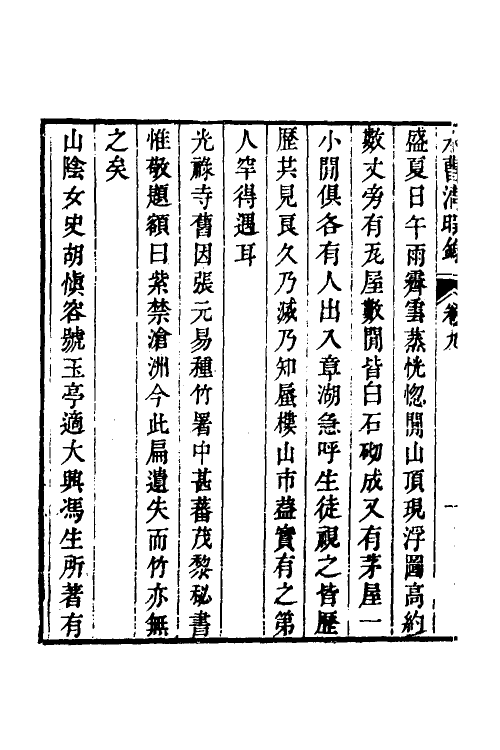 水曹清暇錄 卷九 一
盛夏日午雨霽雲蒸恍惚間山頂現浮圖高約
數丈旁有瓦屋數間皆白石砌成又有茅屋一
小間俱各有人出入章湖急呼生徒視之皆歷
歷共見良久乃滅乃知蜃樓山市葢實有之第
人罕得遇耳
光祿寺舊因張元易種竹署中甚蕃茂黎秘書
惟敬題額曰紫禁滄洲今此扁遺失而竹亦無
之矣
山陰女史胡愼容號玉亭適大興馮生所著有